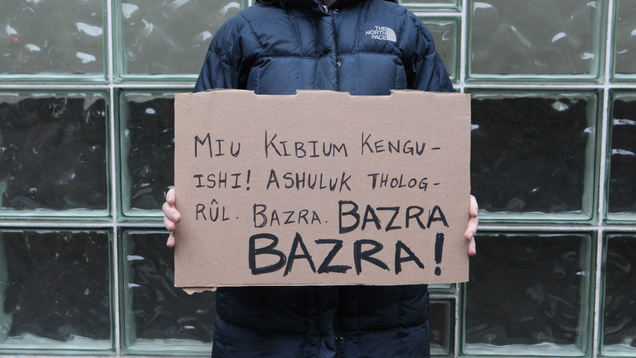 THE
NORTH
FACE
MIU KIBIUM KENGU-
ISHI! ASHULUK THOLOG-
RÛL. BAZRA. BAZRA
BAZRA!